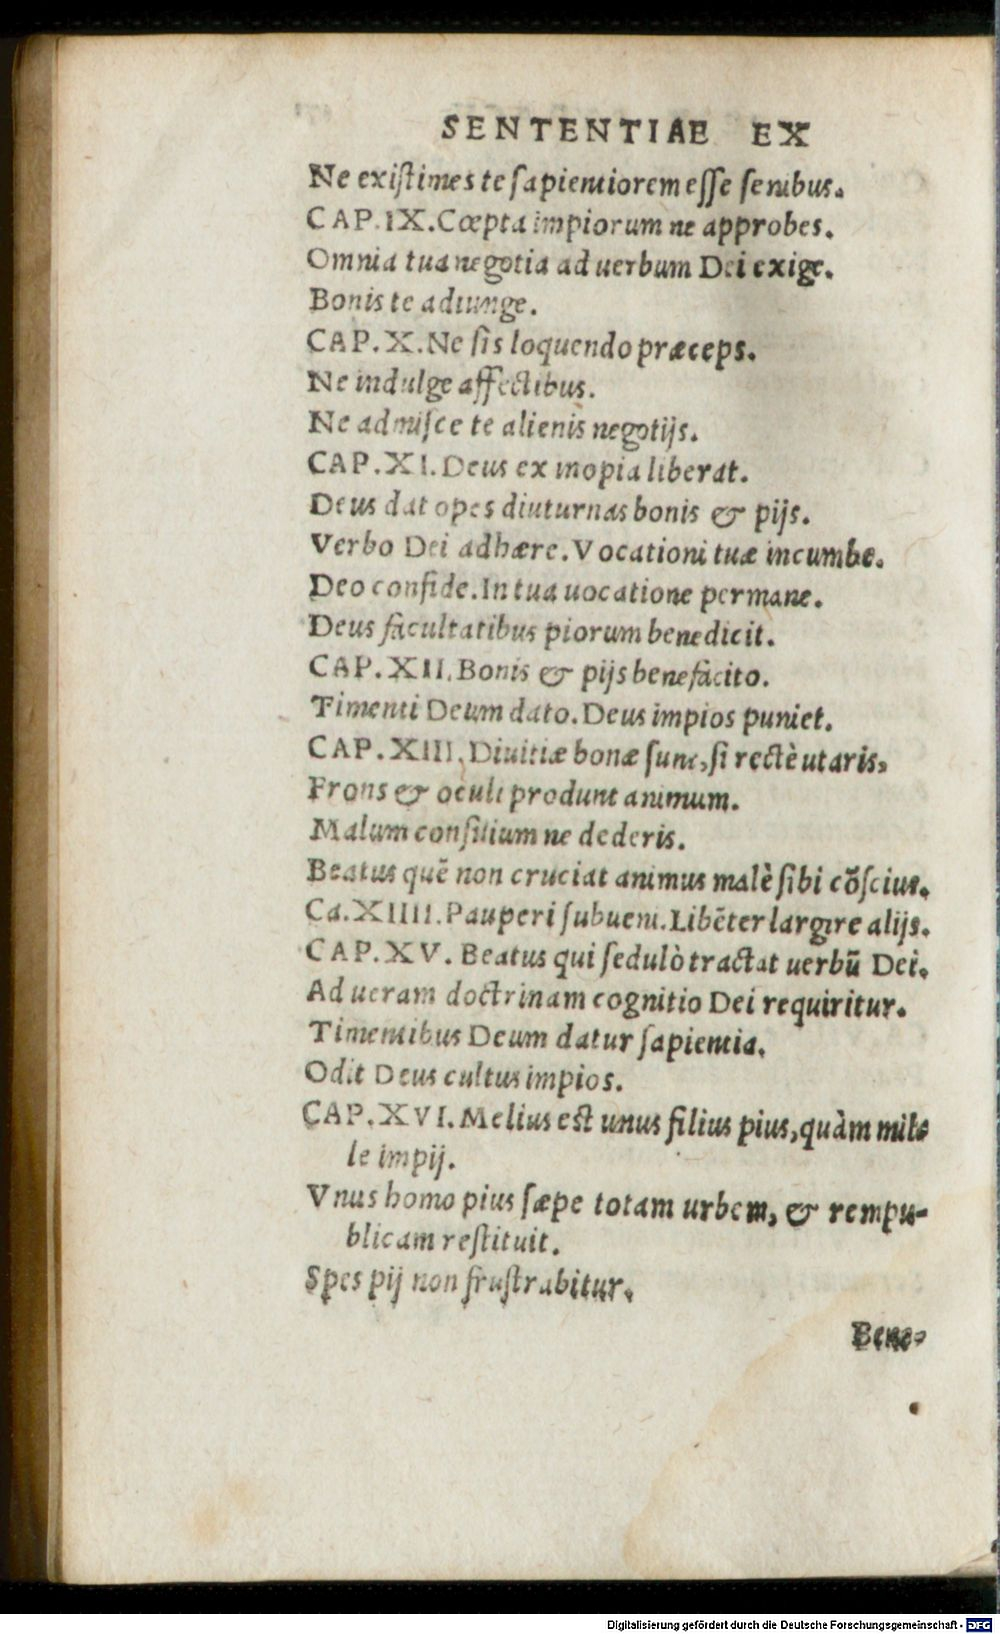 SENTENTIAE EX
Ne existimes te sapientiorem esse senibus.
CAP. IX. Cœpta impiorum ne approbes.
Omnia tua negotia ad uerbum Dei exige.
Bonis te adiunge.
CAP. X. Ne sis loquendo præceps.
Ne indulge affectibus.
Ne admisce te alienis negotijs.
CAP. XI. Deus ex inopia liberat.
Deus dat opes diuturnas bonis & pijs.
Verbo Dei adhære. Vocationi tuæ incumbe.
Deo confide. In tua uocatione permane.
Deus facultatibus piorum benedicit.
CAP. XII. Bonis & pijs benefacito.
Timenti Deum dato. Deus impios puniet.
CAP. XIII. Diuitiæ bonæ sunt, si rectè utaris,
Frons & oculi produnt animum.
Malum consilium ne dederis.
Beatus quē non cruciat animus malè sibi cōscius.
Ca. XIIII. Pauperi subueni. Libēter largire alijs.
CAP. XV. Beatus qui sedulò tractat uerbū Dei.
Ad ueram doctrinam cognitio Dei requiritur.
Timentibus Deum datur sapientia.
Odit Deus cultus impios.
CAP. XVI. Melius est unus filius pius, quàm mil-
le impij.
Vnus homo pius sæpe totam urbem, & rempu-
blicam restituit.
Spes pij non frustrabitur.
Bene-
Digitalisierung gefördert durch die Deutsche Forschungsgemeinschaft - DFG